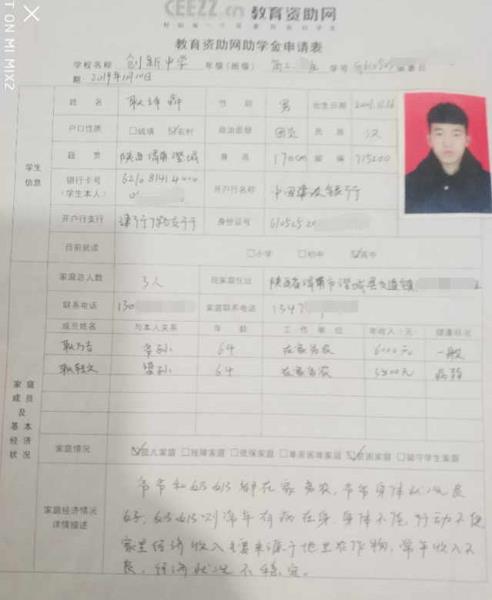 T ON MI MIX2
CEEZZ.cn 教育资助网
教育资助网助学金申请表
学校名称 创新中学 年级(班级) 高二 学号 填表日
期: 2019年1月10日
姓 名 性 别 男 出生日期
户口性质 □城镇 ☑农村 政治面貌 团员 民 族 汉
籍 贯 陕西渭南澄城 身 高 170cm 邮 编 715200
银行卡号
(学生本人) 开户行名称 中国建设银行
开户行支行 身份证号
目前就读 □小学 □初中 ☑高中
学生
信息
家庭总人数 3人 现家庭住址 陕西省渭南市澄城县交道镇
联系电话 130 家庭联系电话 1347
成员姓名 与本人关系 年 龄 工 作 单 位 年收入(元) 健康状况
爷孙 64 在家务农 6000元 一般
婆孙 64 在家务农 5800元
家 庭
成 员
及
基 本
经 济
状 况
家庭情况 ☑孤儿家庭 □残障家庭 □低保家庭 □单亲困难家庭 ☑贫困家庭 □留守学生家庭
家庭经济情况
详情描述
爷爷和奶奶都在家务农,爷爷身体状况良
好,奶奶则常年有病在身,身体不佳,行动不便
家里经济收入主要来源于地里农作物,常年收入不
良,经济状况不稳定。